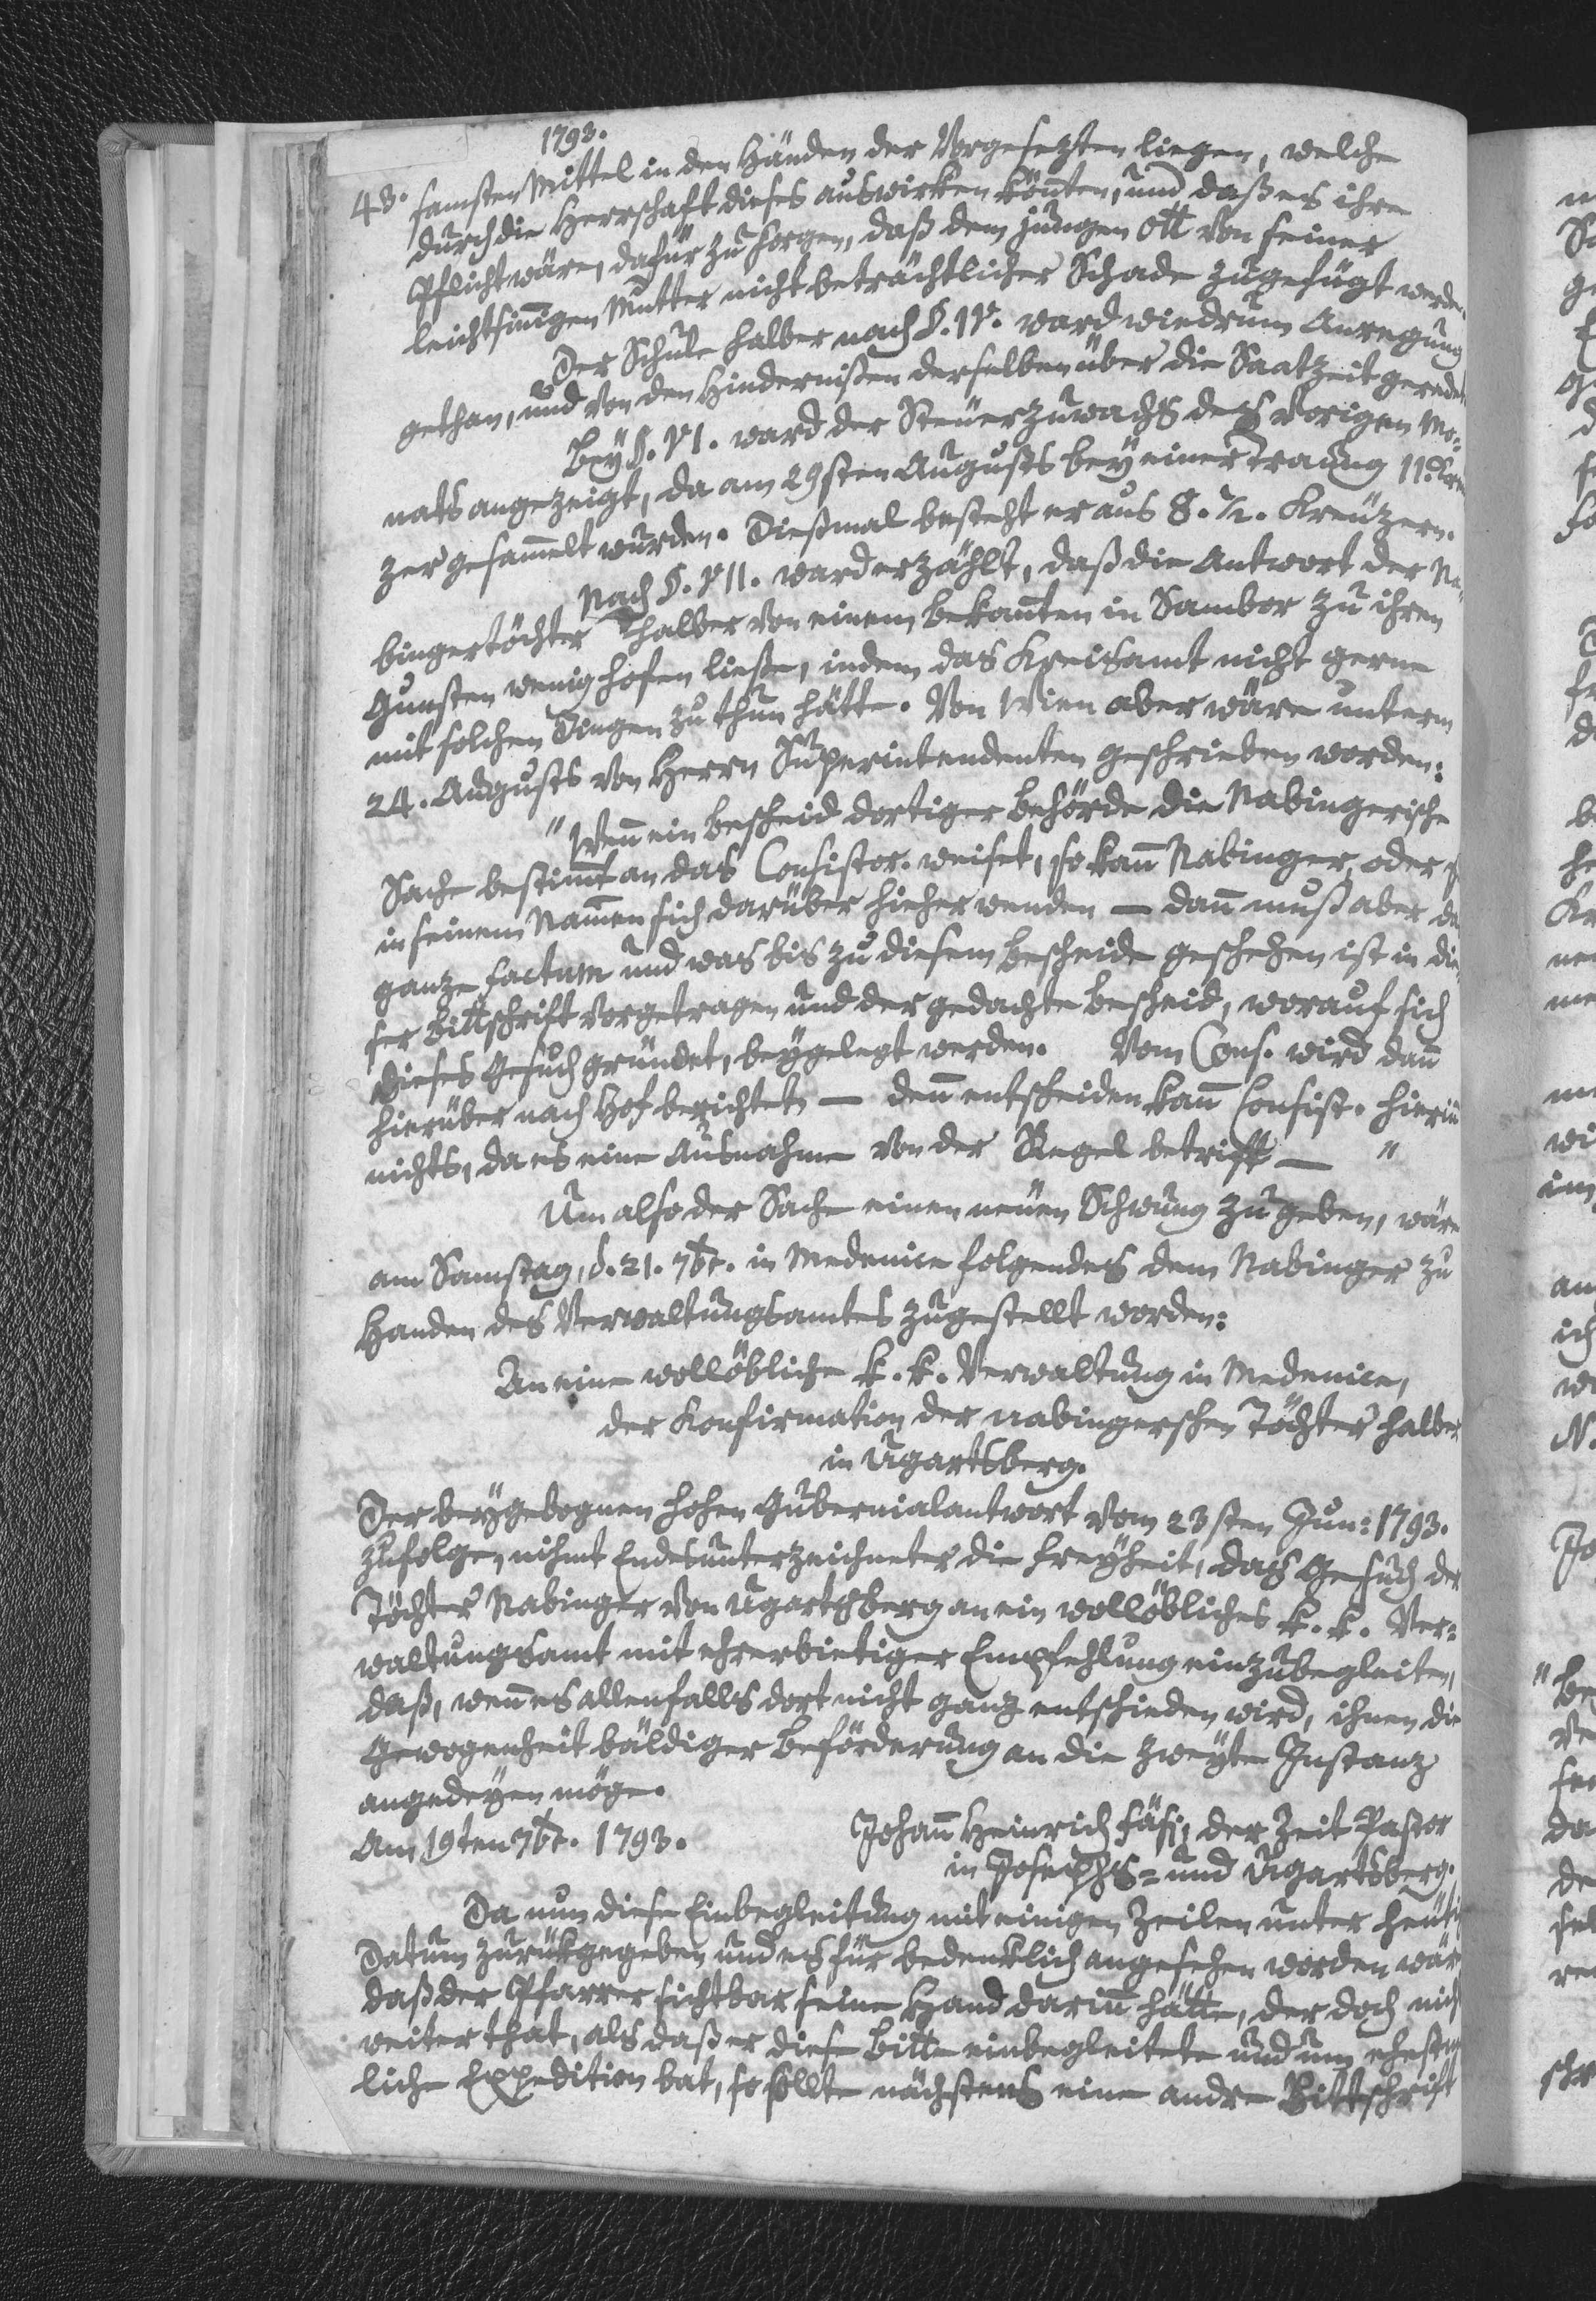 1793.
48. samsten Mittel in den Händen der Vorgesezten liegen, welche
durch die Herrschaft dieses auswirken könten, und daß es ihre
Pflicht wäre, dafür zu sorgen, daß dem jungen Ott von seiner
leichtsinigen Mutter nicht beträchtlicher Schade zugefügt werde.
Der Schule halber nach §. IV. ward wiedrum Anregung
gethan, und von den Hindernißen derselben über die Saatzeit geredet.
Bey §. VI. ward der Steuerzuwachs des vorigen Mo=
nats angezeigt, da am 29sten Augusts bey einer Trauung 11. Kreu
zer gesamelt wurden. Dießmal besteht er aus 8. ½. Kreuzern.
Nach §. VII. ward erzählt, daß die Antwort der Na=
bingertöchter halber von einem bekanten in Sambor zu ihren
Gunsten wenig hofen ließe, indem das Kreisamt nicht gerne
mit solchen Dingen zu thun hätte. Von Wien aber wäre unterm
24. Augusts von Herrn Superintendenten geschrieben worden:
"Wenn ein bescheid dortiger Behörde die Nabingerische
Sache bestimt an das Consistor. weiset, so kann Nabinger, oder
in seinem Namen sich darüber hieher wenden — dann muß aber da
ganze factum und was bis zu diesem bescheide geschehen ist in die=
ser Bittschrift vorgetragen und der gedachte bescheid, worauf sich
dieses Gesuch gründet, beygelegt werden. Vom Cons. wird dann
hierüber nach Hof berichtet — denn entscheiden kann Consist. hierin
nichts, da es eine Ausnahme von der Regel betrifft — "
Um also der Sache einen neuen Schwung zu geben, wäre
am Samstag, d. 21. 7br. in Medenice folgendes dem Nabinger zu
Handen des Verwaltungsamtes zugestellt worden:
An eine wollöbliche k. k. Verwaltung in Medenice,
der Konfirmation der nabingerschen Töchter halber
in Ugartsberg.
Der beygebognen hohen Gubernialantwort vom 23sten Jun: 1793.
zufolge, nihmt Endesunterzeichneter die Freyheit, das Gesuch der
Töchter Nabinger von Ugartsberg an ein wollöbliches k. k. Ver=
waltungsamt mit ehrerbietiger Empfehlung einzubegleiten,
daß, wenn es allenfalls dort nicht ganz entschieden wird, ihnen die
Gewogenheit bäldiger Beförderung an die zweyte Instanz
angedeyen möge.
Am 19ten 7br. 1793. Johann Heinrich Fäsi, der Zeit Pastor
in Josephs= und Ugartsberg.
Da nun diese Einbegleitung mit einigen Zeilen unter heuti
Datum zurükgegeben und es für bedenklich angesehen worden wär
daß der Pfarrer sichtbar seine Hand darinn hätte, der doch nich
weiter that, als daß er diese Bitte einbegleitete und um ehest
liche Expedition bat, so sollte nächstens eine andre Bittschrift